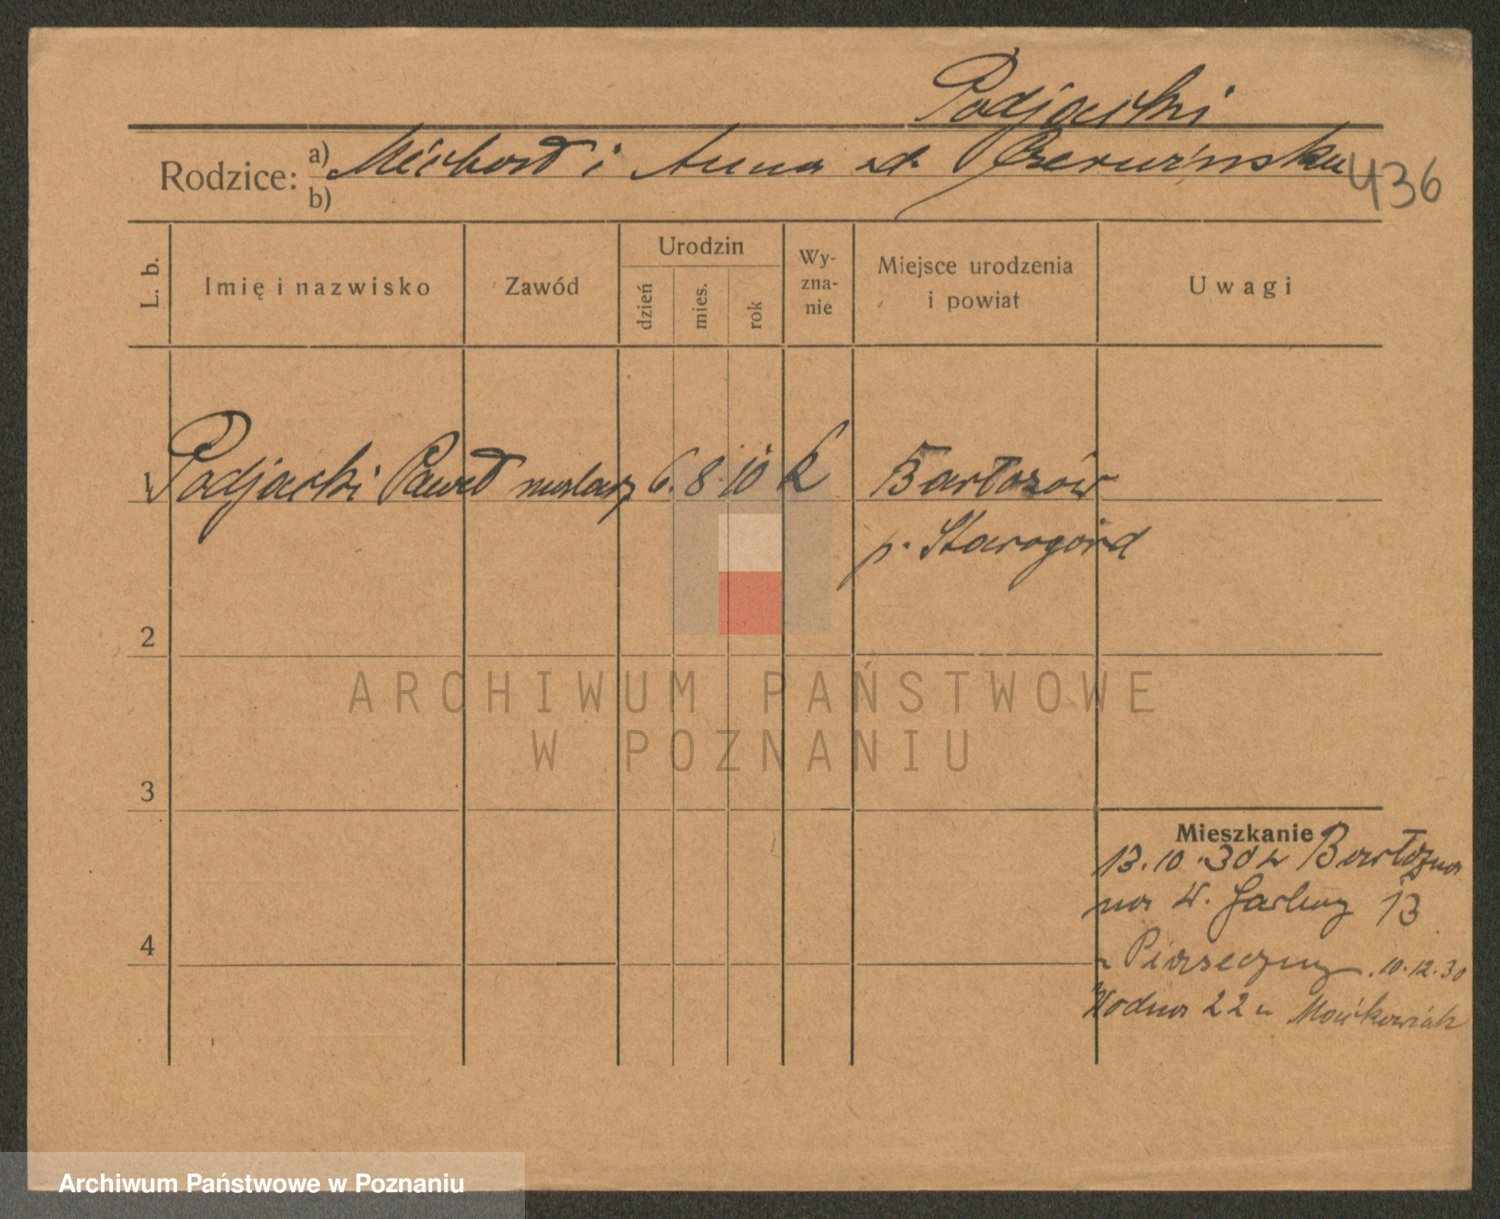 Podjacki
Rodzice: a) Michał i Anna zd. Czerwińska
b)
436
L. b.
Imię i nazwisko
Zawód
Urodzin
dzień
mies.
rok
Wy-
zna-
nie
Miejsce urodzenia
i powiat
Uwagi
1 Podjacki Paweł 6. 8. 10 k
p. Starogard
2
3
4
ARCHIWUM PAŃSTWOWE
W POZNANIU
Mieszkanie
13.10.30 z
na 13
10.12.30
Wodna 22 u
Archiwum Państwowe w Poznaniu